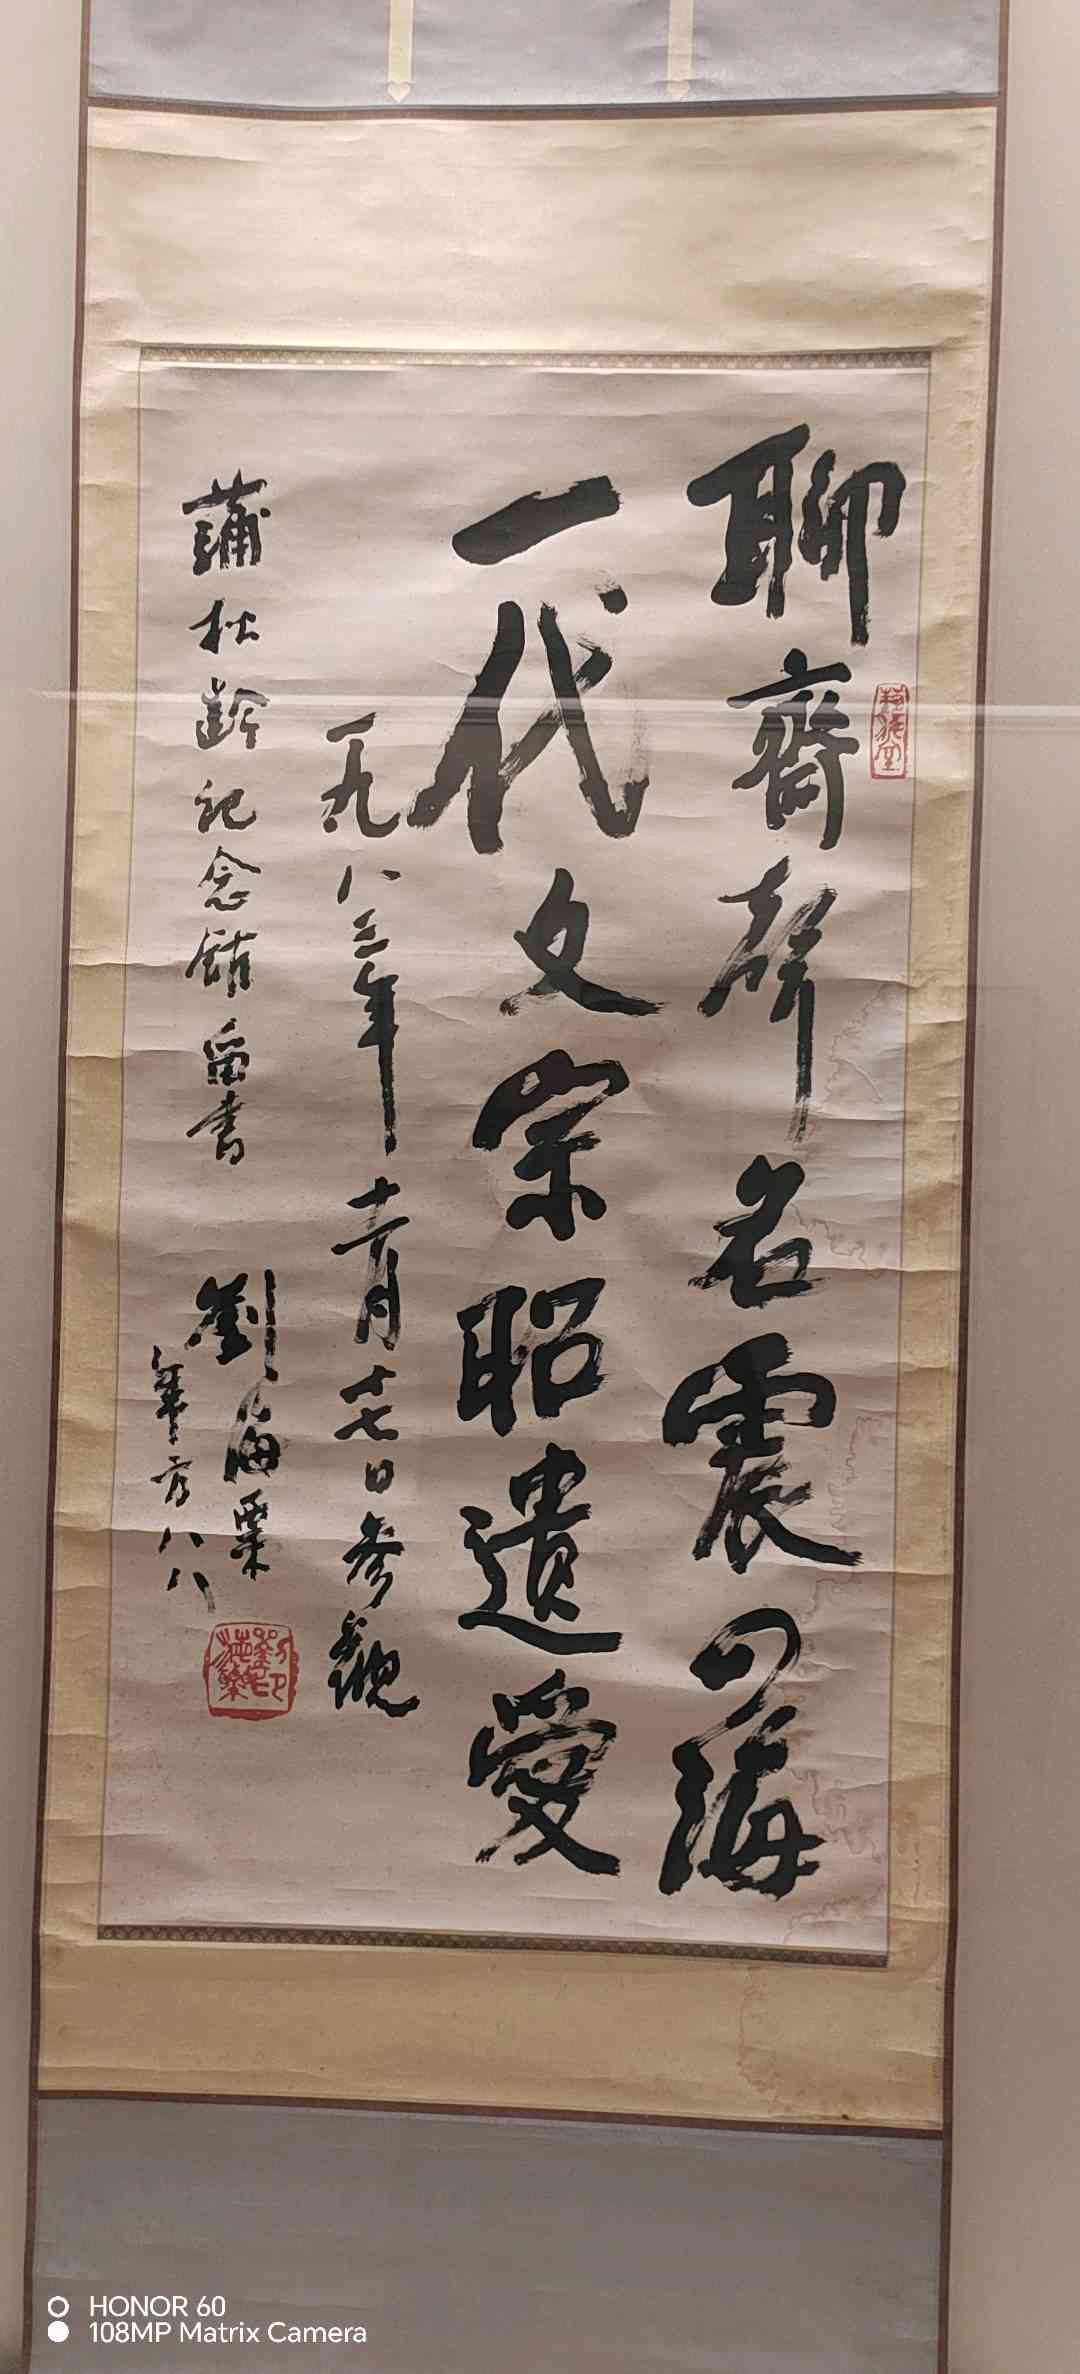 聊齋聲名震四海
一代文宗昭遺愛
一九八三年十一月十七日参觀
蒲松齡紀念館留書
劉海粟
年方八八
HONOR 60
108MP Matrix Camera